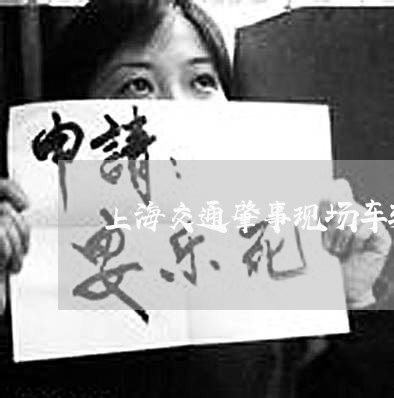 申請：
要乐死
上海交通肇事现场车